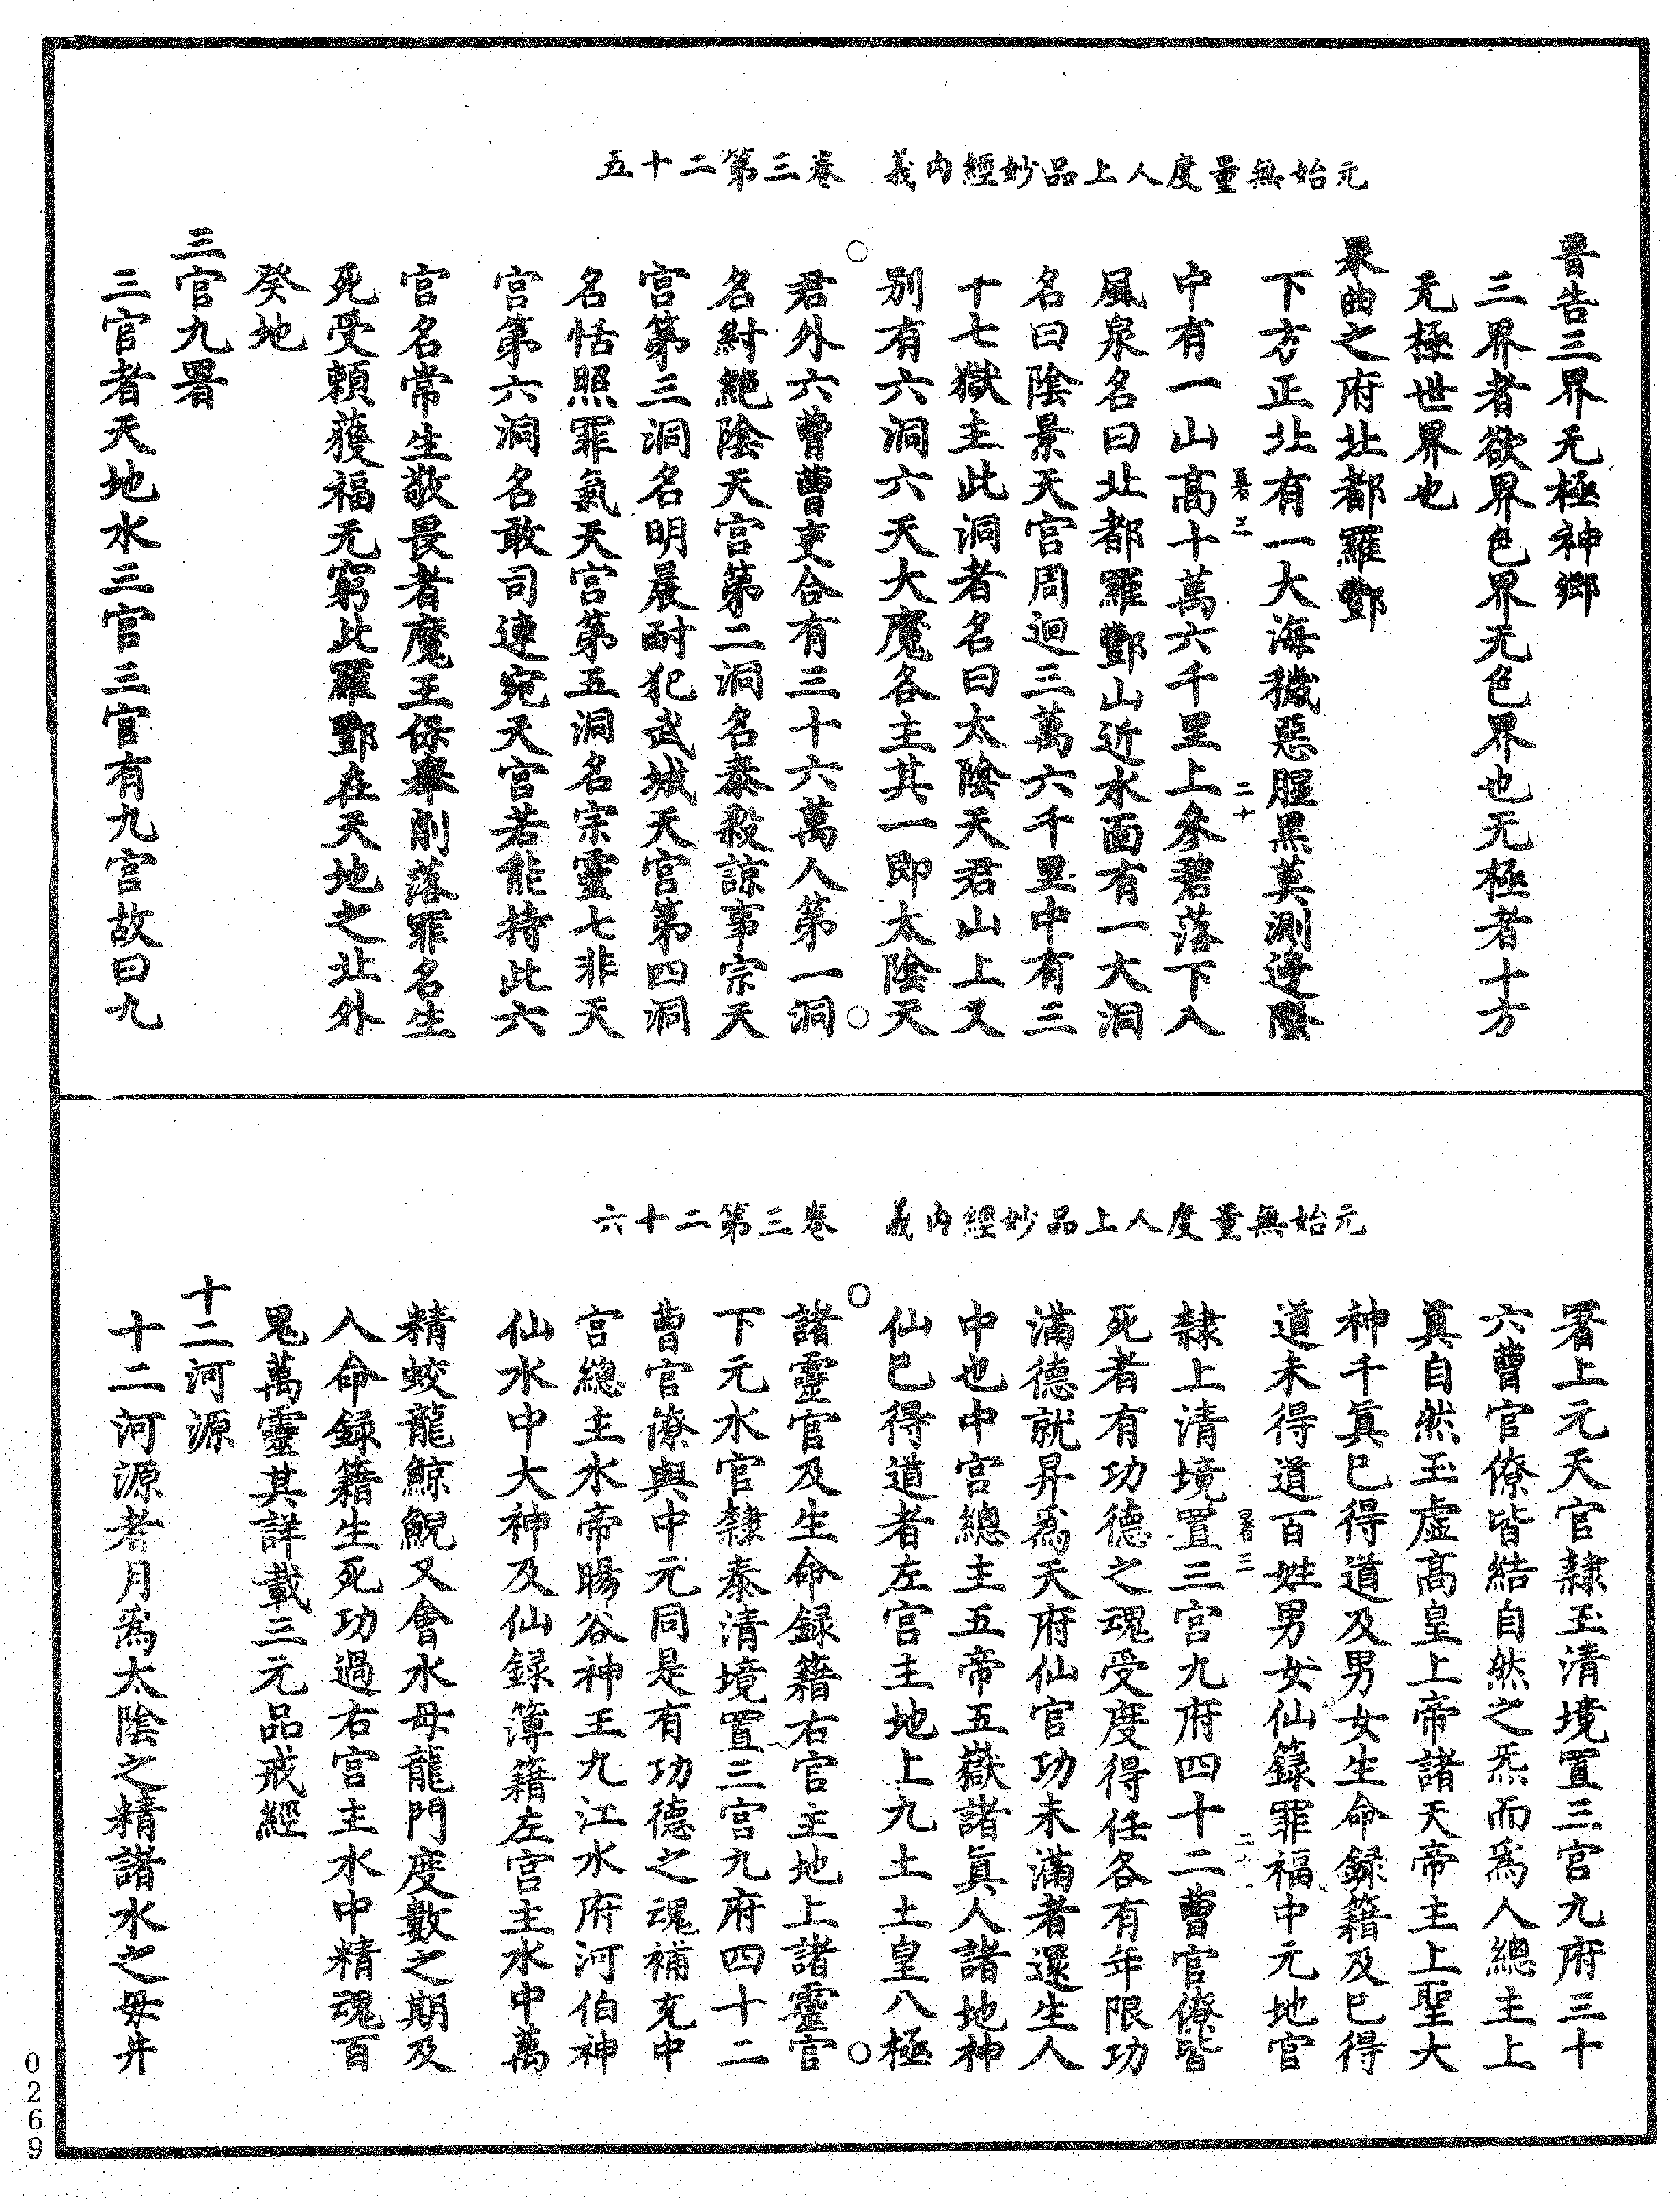 元始無量度人上品妙經內義　卷三第二十五
普告三界无極神鄉
三界者欲界色界无色界也无極者十方
无極世界也
泉曲之府北都羅酆
下方正北有一大海穢惡腥黑莫測邊際
署三　二十
中有一山高十萬六千里上參碧落下入
風泉名曰北都羅酆山近水面有一大洞
名曰陰景天宮周迴三萬六千里中有三
十七獄主此洞者名曰太陰天君山上又
別有六洞六天大魔各主其一即太陰天
君外六曹曹吏合有三十六萬人第一洞
名紂絕陰天宮第二洞名泰殺諒事宗天
宮第三洞名明晨耐犯武城天宮第四洞
名恬照罪氣天宮第五洞名宗靈七非天
宮第六洞名敢司連宛天宮若能持此六
宮名常生敬畏者魔王保舉削落罪名生
死受賴蒦福无窮此羅酆在天地之北外
癸地
三官九署
三官者天地水三官三官有九宮故曰九
元始無量度人上品妙經內義　卷三第二十六
署上元天官隸玉清境置三宮九府三十
六曹官僚皆結自然之炁而為人總主上
真自然玉虛高皇上帝諸天帝主上聖大
神千真已得道及男女生命録籍及已得
道未得道百姓男女仙籙罪福中元地官
署三
隸上清境置三宮九府四十二曹官僚皆
死者有功德之魂受度得任各有年限功
滿德就昇為天府仙官功未滿者還生人
中也中宮總主五帝五嶽諸真人諸地神
仙已得道者左宮主地上九土土皇八極
諸靈官及生命録籍右官主地上諸靈官
下元水官隸泰清境置三宮九府四十二
曹官僚與中元同是有功德之魂補充中
宮總主水帝暘谷神王九江水府河伯神
仙水中大神及仙録簿籍左宮主水中萬
精蛟龍鯨鯢又會水母龍門度數之期及
人命録籍生死功過右宮主水中精魂百
鬼萬靈其詳載三元品戒經
十二河源
十二河源者月為太陰之精諸水之母井
0269